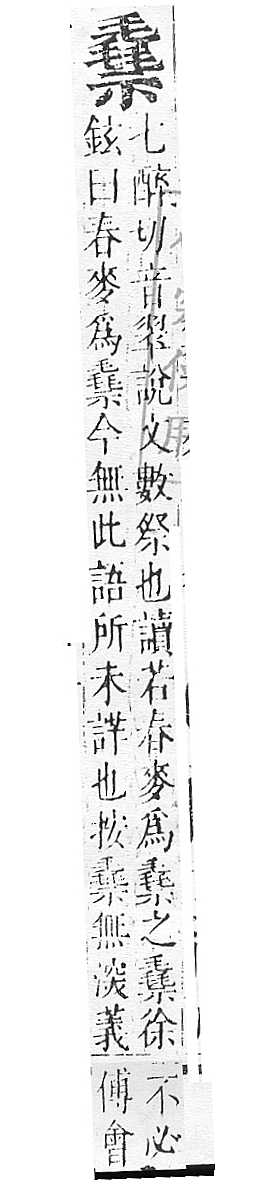 𥜽
七醉切音翠說文數祭也讀若舂麥爲𥜽之𥜽徐
鉉曰舂麥爲𥜽今無此語所未詳也按𥜽無深義
不必
傅會